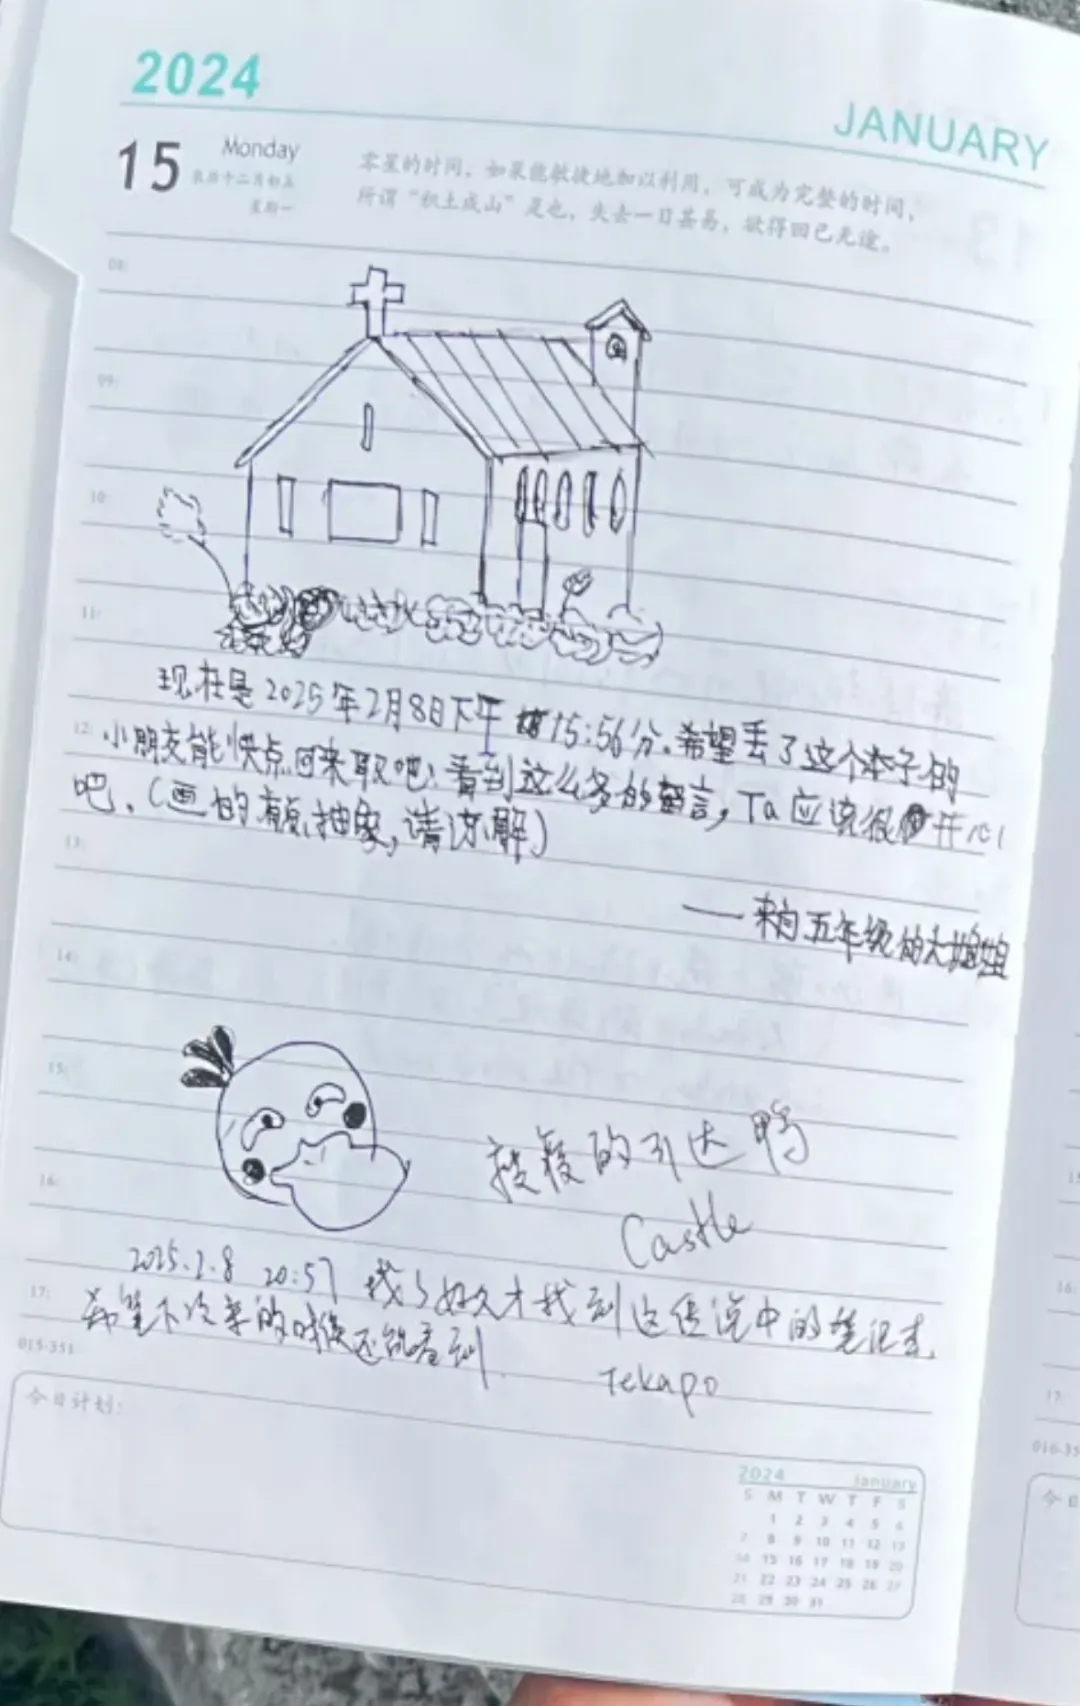 2024
JANUARY
15 Monday
农历十二月初五
星期一
零星的时间，如果能敏捷地加以利用，可成为完整的时间，
所谓“积土成山”是也，失去一日甚易，欲得回已无途。
08:
09:
10:
11:
现在是2025年2月8日下午15:56分。希望丢了这个本子的
12:
小朋友能快点回来取吧！看到这么多的留言，Ta应该很开心
吧。（画的有点抽象，请谅解）
13:
——来自五年级的大姐姐
14:
15:
的可达鸭
16:
Castle
2025.2.8 20:57 找了好久才找到这传说中的笔记本
17:
希望下次来的时候还能看到
015-351
Tekapo
今日计划：
2024 January
S M T W T F S
1 2 3 4 5 6
7 8 9 10 11 12 13
14 15 16 17 18 19 20
21 22 23 24 25 26 27
28 29 30 31
15
16:
17:
016-35
今日